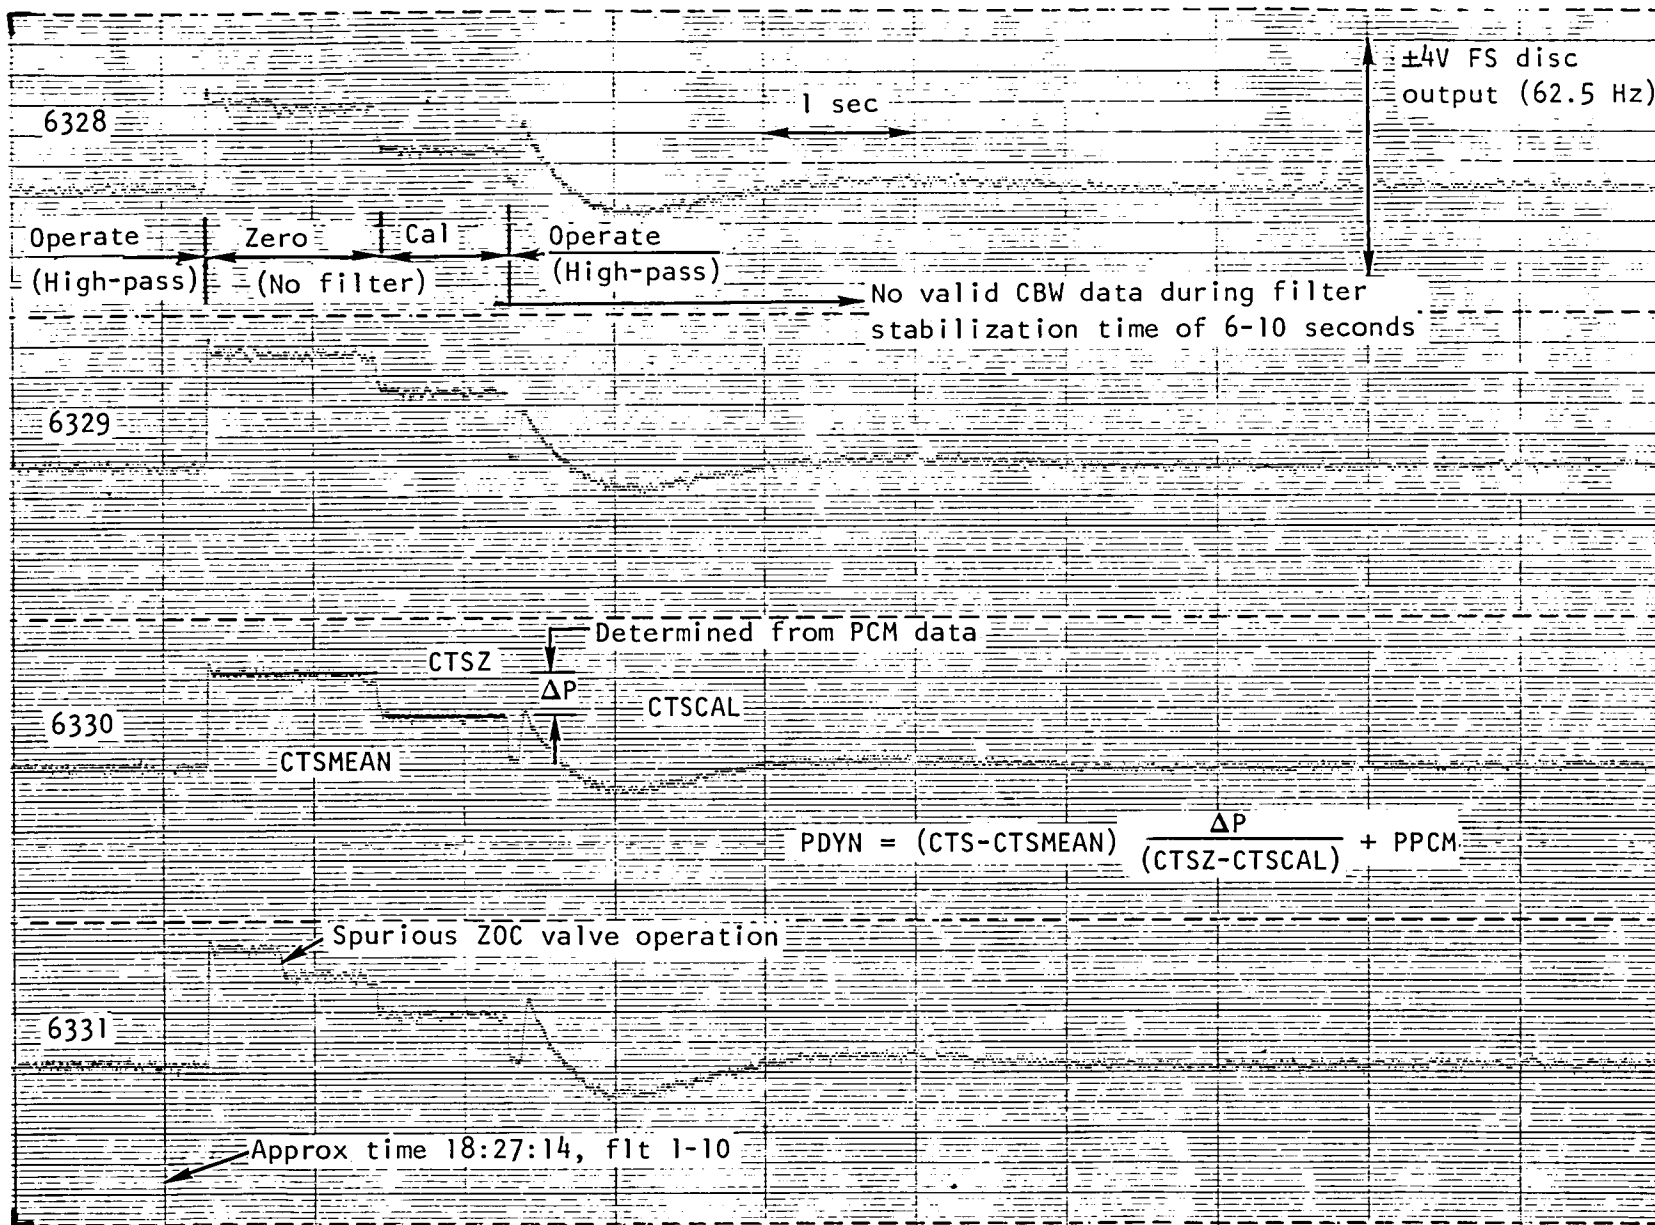 ±4V FS disc
output (62.5 Hz)
1 sec
6328
Operate
(High-pass)
Zero
(No filter)
Cal
Operate
(High-pass)
No valid CBW data during filter
stabilization time of 6-10 seconds
6329
Determined from PCM data
CTSZ
ΔP
CTSCAL
6330
CTSMEAN
PDYN = (CTS-CTSMEAN) ΔP / (CTSZ-CTSCAL) + PPCM
Spurious ZOC valve operation
6331
Approx time 18:27:14, flt 1-10